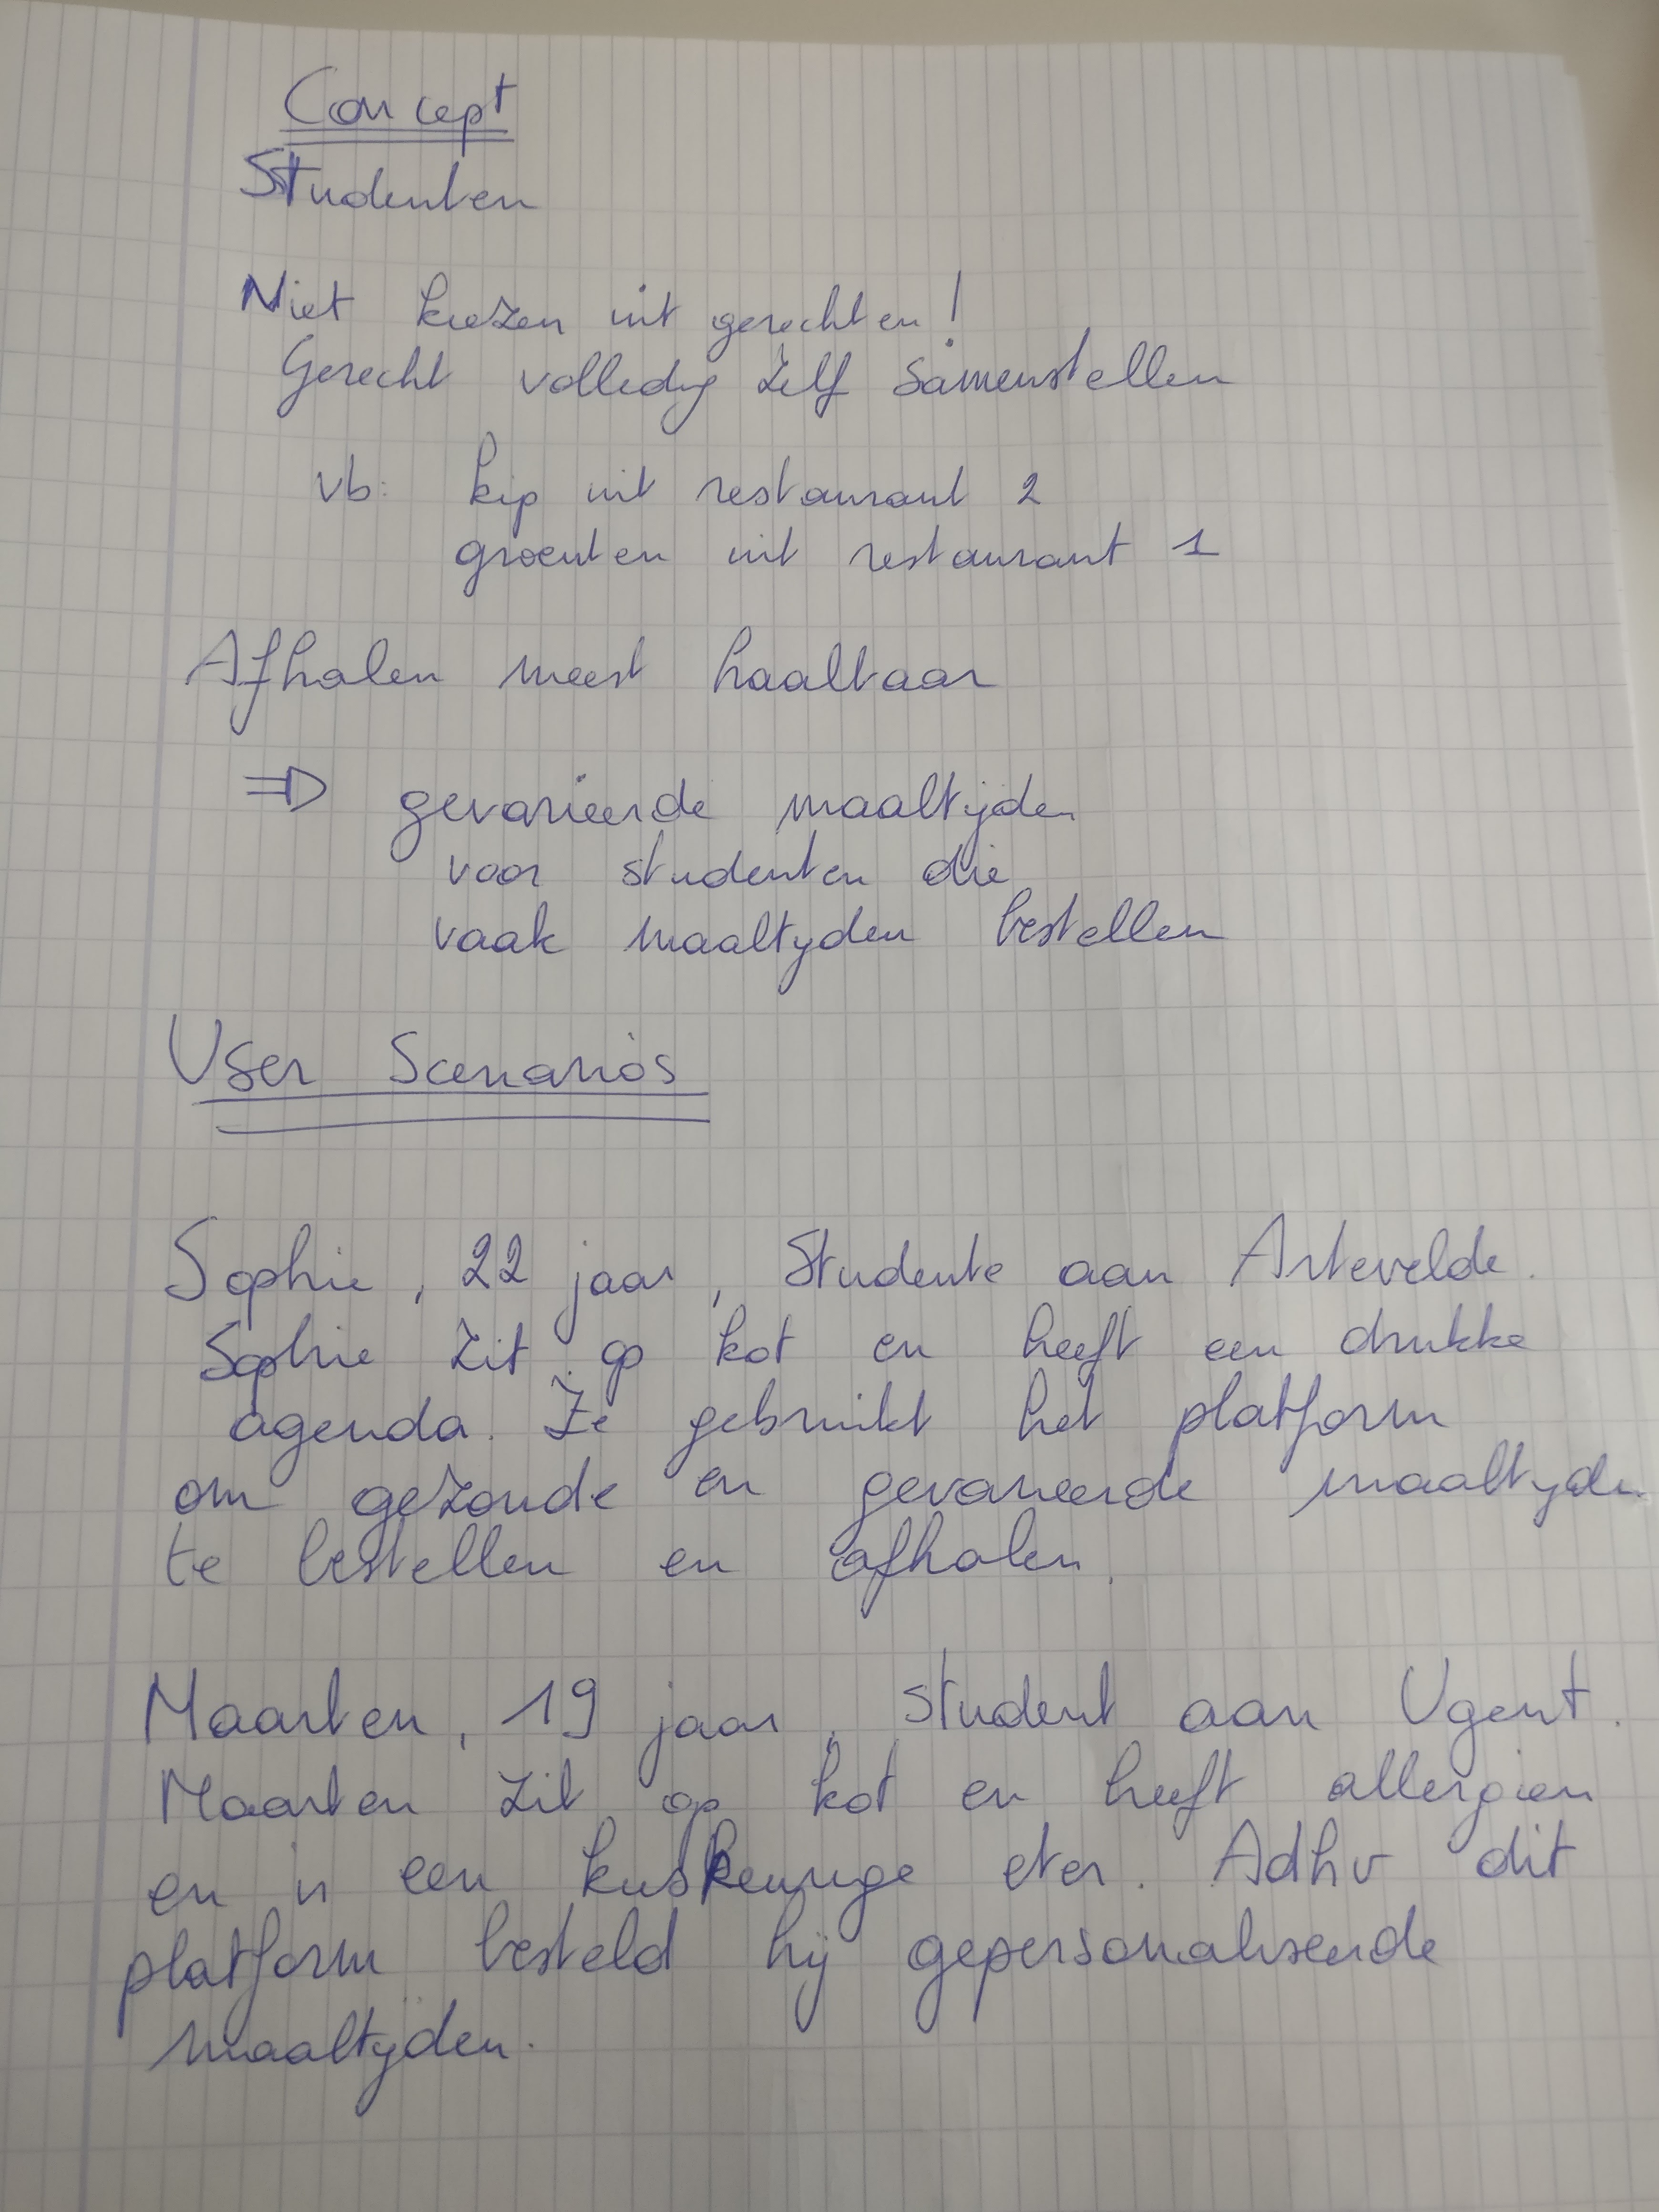 Concept
Studenten
Niet kiezen uit gerechten!
Gerecht volledig zelf samenstellen
vb: kip uit restaurant 2
groenten uit restaurant 1
Afhalen meest haalbaar
⇒ gevarieerde maaltijden
voor studenten die
vaak maaltijden bestellen
User Scenarios
Sophie, 22 jaar, Studente aan Artevelde.
Sophie zit op kot en heeft een drukke
agenda. Ze gebruikt het platform
om gezonde en gevarieerde maaltijden
te bestellen en afhalen.
Maarten, 19 jaar, student aan Ugent.
Maarten zit op kot en heeft allergien
en is een kieskeurige eter. Adhv dit
platform besteld hij gepersonaliseerde
maaltijden.